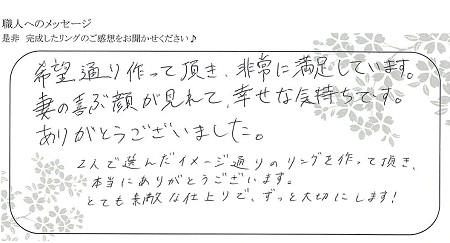 職人へのメッセージ
是非 完成したリングのご感想をお聞かせください♪
希望通り作って頂き、非常に満足しています。
妻の喜ぶ顔が見れて、幸せな気持ちです。
ありがとうございました。
2人で選んだイメージ通りのリングを作って頂き、
本当にありがとうございます。
とても素敵な仕上りで、ずっと大切にします!